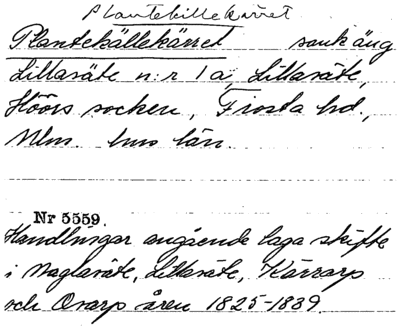 Plantekillekärret
Plantekällekärret sank äng
Lillasäte n:r 1 a, Lillasäte,
Höörs socken, Frosta hd.,
Mlm. hus län.
Nr 5559.
Handlingar angående laga skifte
i Maglasäte, Lillasäte, Kärrarp
och Ovarp åren 1825-1839.